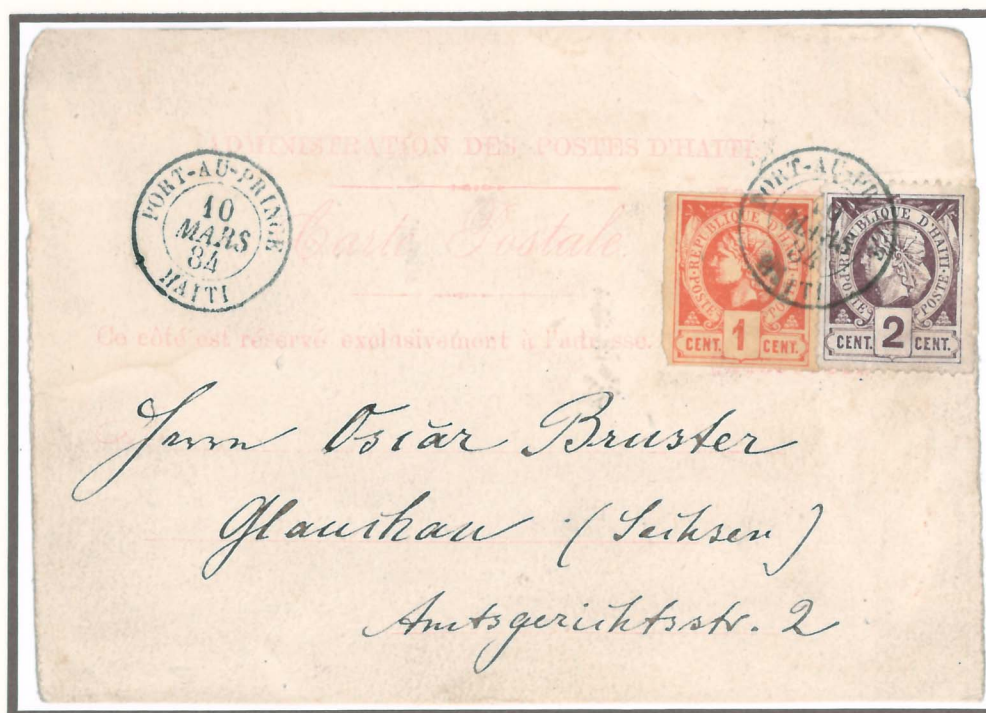 ADMINISTRATION DES POSTES D'HAITI
PORT-AU-PRINCE
10
MARS
84
HAITI
Carte Postale
PORT-AU-PRINCE
MARS
84
HAITI
POSTE · REPUBLIQUE D'HAITI · POSTE
CENT. 1 CENT.
POSTE · REPUBLIQUE D'HAITI · POSTE
CENT. 2 CENT.
Ce côté est réservé exclusivement à l'adresse.
Herrn Oscar Bruster
Glauchau (Sachsen)
Amtsgerichtsstr. 2